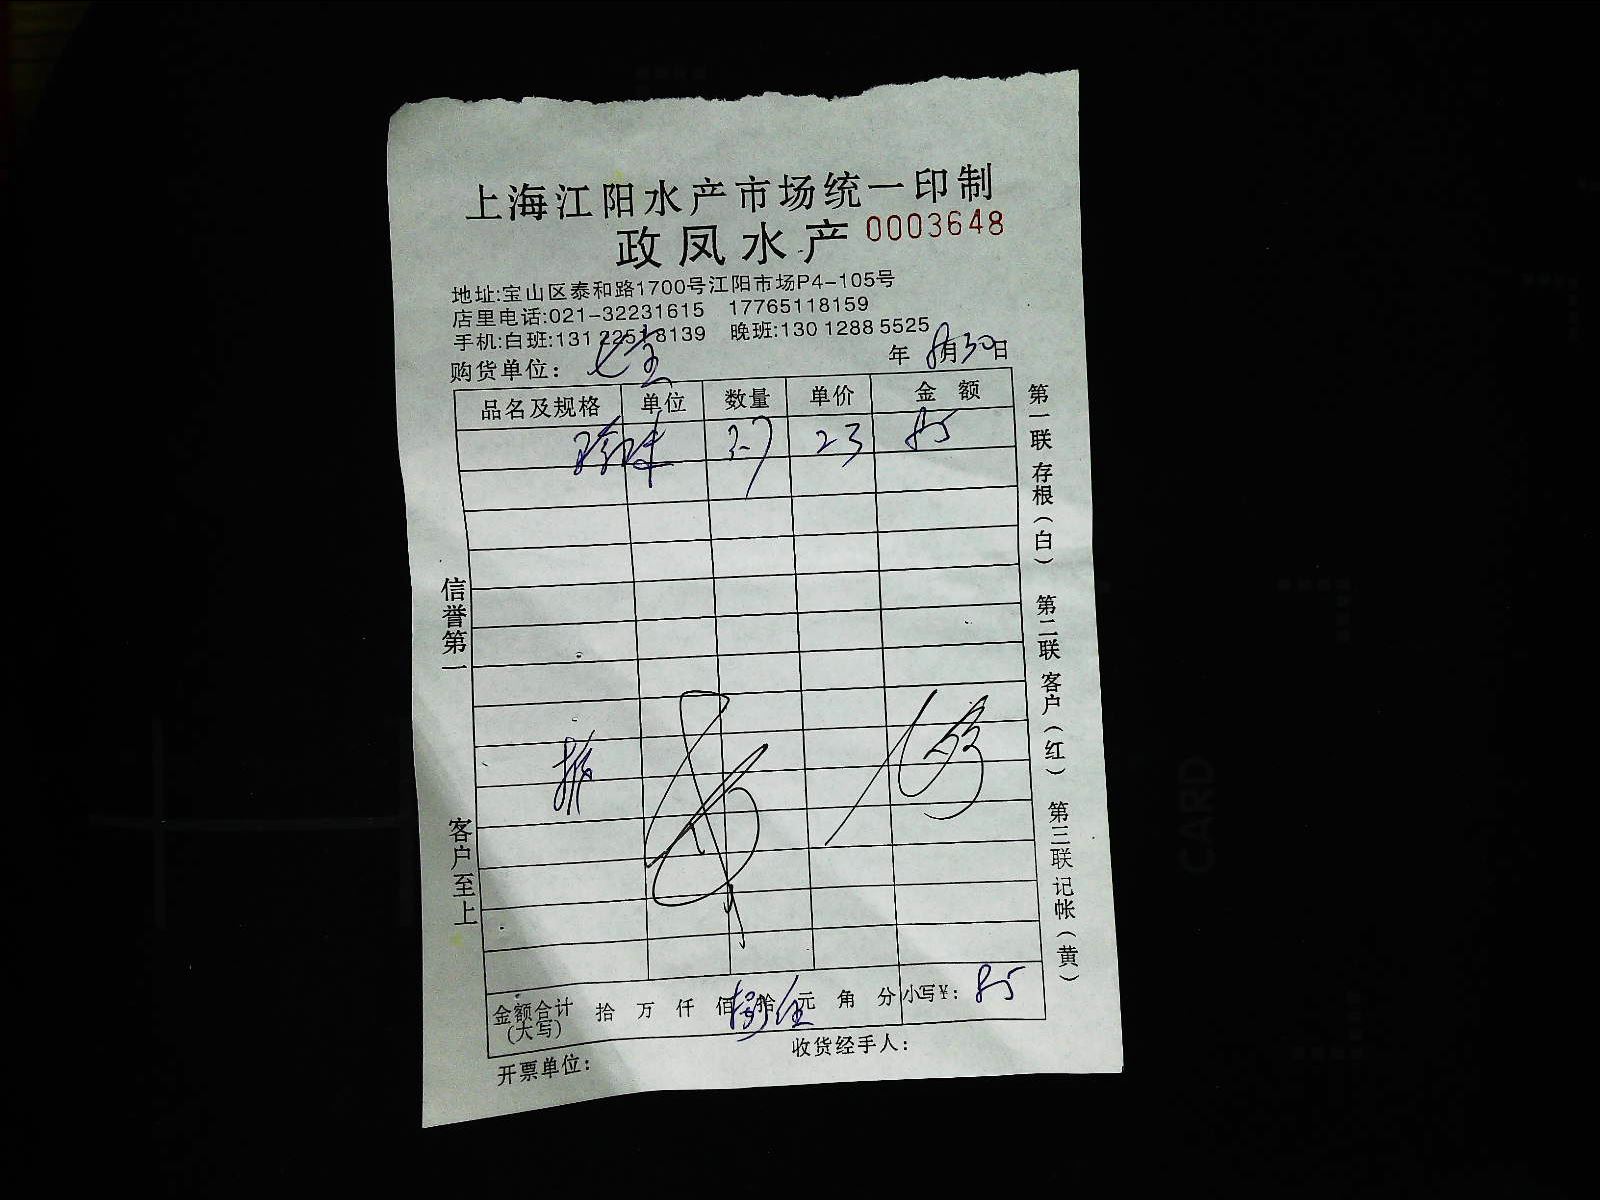 上海江阳水产市场统一印制
政凤水产 0003648
地址:宝山区泰和路1700号江阳市场P4-105号
店里电话:021-32231615 17765118159
手机:白班:131 2251 8139 晚班:130 1288 5525
购货单位: 七宝 年 8月30日
品名及规格 单位 数量 单价 金额
3.7 23 85
金额合计(大写) 拾 万 仟 佰 捌拾伍元 角 分 小写¥: 85
开票单位: 收货经手人:
信誉第一 客户至上
第一联存根(白) 第二联客户(红) 第三联记帐(黄)